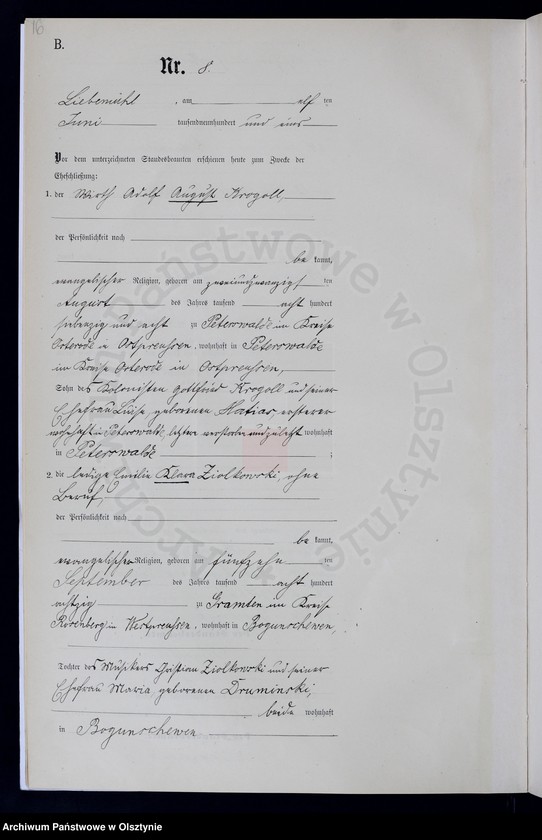 16
B.
Nr. 8.
Liebemühl, am elf ten
Juni tausendneunhundert und eins
Vor dem unterzeichneten Standesbeamten erschienen heute zum Zwecke der
Eheschließung:
1. der Wirth Adolf August Krogoll,
der Persönlichkeit nach
be kannt,
evangelischer Religion, geboren am zweiundzwanzigsten
August des Jahres tausend acht hundert
siebenzig und acht zu Peterswalde im Kreise
Osterode in Ostpreußen, wohnhaft in Peterswalde
im Kreise Osterode in Ostpreußen,
Sohn des Kolonisten Gottfried Krogoll und seiner
Ehefrau Luise geborenen ersterer
wohnhaft in Peterswalde letztere verstorben und zuletzt wohnhaft
in Peterswalde ;
2. die ledige Emilie Klara Ziolkowski, ohne
Beruf,
der Persönlichkeit nach
be kannt,
evangelischer Religion, geboren am fünfzehn ten
September des Jahres tausend acht hundert
achtzig zu Gramten im Kreise
Rosenberg in Westpreußen, wohnhaft in Bogunschewen,
Tochter des Musikers Christian Ziolkowski und seiner
Ehefrau Maria geborenen Druminski,
beide wohnhaft
in Bogunschewen
Archiwum Państwowe w Olsztynie
Archiwum Państwowe w Olsztynie